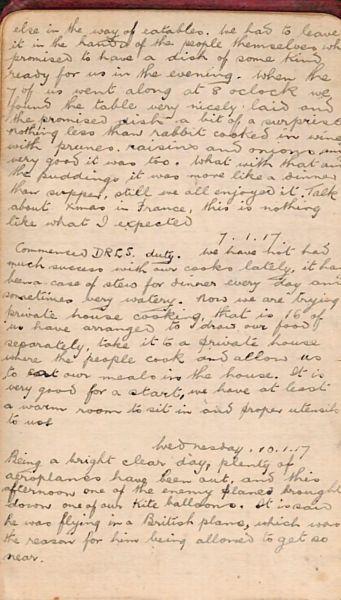 else in the way of eatables. We had to leave
it in the hands of the people themselves who
promised to have a dish of some kind
ready for us in the evening. When the
7 of us went along at 8 oclock we
found the table very nicely laid and
the promised dish a bit of a surprise
nothing less than rabbit cooked in wine
with prunes. raisins and onions and
very good it was too. What with that and
the puddings it was more like a dinner
than supper, still we all enjoyed it. Talk
about Xmas in France, this is nothing
like what I expected
7.1.17.
Commenced DRLS. duty. We have not had
much success with our cooks lately, it has
been a case of stew for dinner every day and
sometimes very watery. Now we are trying
private house cooking, that is, 16 of
us have arranged to draw our food
separately, take it to a private house
where the people cook and allow us
to eat our meals in the house. It is
very good for a start, we have at least
a warm room to sit in and proper utensils
to use
Wednesday. 10.1.17
Being a bright clear day, plenty of
aeroplanes have been out, and this
afternoon one of the enemy planes brought
down one of our Kite balloons. It is said
he was flying in a British plane, which was
the reason for him being allowed to get so
near.